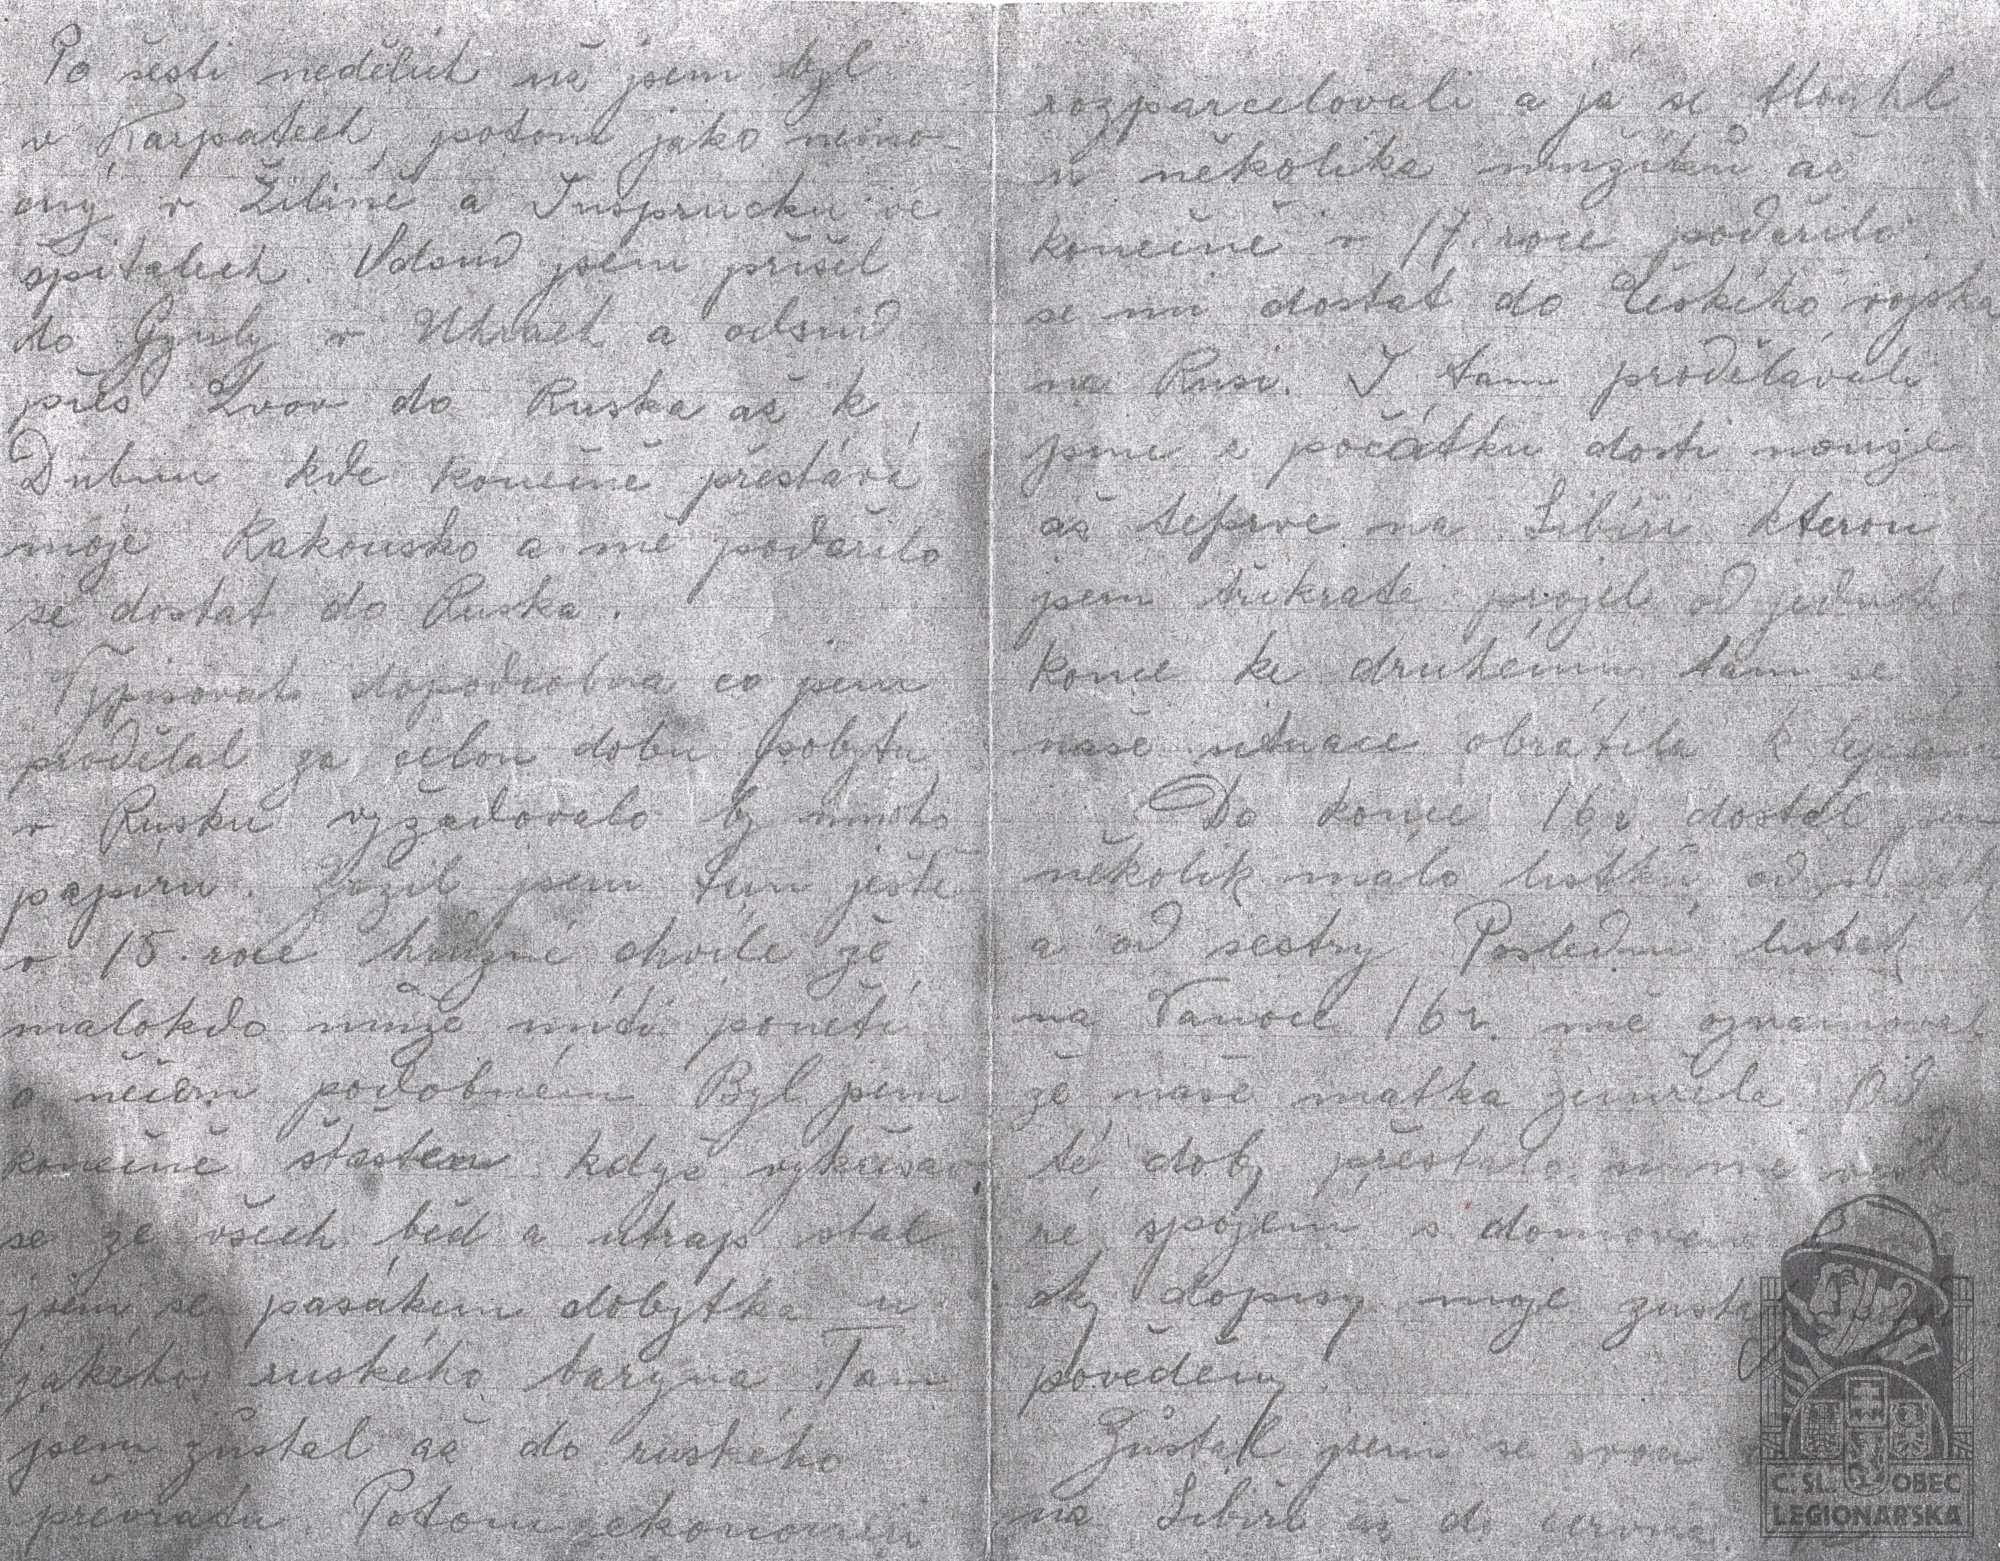 Po šesti nedělích už jsem byl
v Karpatech, potom jako nemo-
cný v Žilině a Insprucku ve
špitalech. Odsud jsem přišel
do Gyuly v Uhrách a odsud
přes Lvov do Ruska až k
Dubnu kde konečně přestává
moje Rakousko a mě podařilo
se dostat do Ruska.
Vypisovat dopodrobna co jsem
prodělal za celou dobu pobytu
v Rusku vyžadovalo by mnoho
papiru. Zažil jsem tam ještě
v 15. roce hrůzné chvíle že
málokdo může míti ponětí
o něčem podobném Byl jsem
konečně šťasten když vykřesav
se ze všech běd a útrap stal
jsem se pasákem dobytka u
jakéhosi ruského baryna. Tam
jsem zůstal až do ruského
převratu. Potom
rozparcelovali a já se tloukl
u několika mužíků až
konečně v 17. roce podařilo
se mi dostat do Českého vojska
na Rusi. I tam prodělávali
jsme z počátku dosti nouze
až teprve na Sibiři kterou
jsem třikráte projel od jednoho
konce ke druhému tam se
naše situace obrátila k
Do konce 16 r. dostal jsem
několik málo lístků od
a od sestry Poslední lístek
na Vánoce 16 r. mě oznamoval
že naše matka zemřela. Od
té doby přestalo
ré spojení s domovem
ky dopisy moje
povědeny.
Zůstal jsem se svou
na Sibiři až do června
Č. SL. OBEC
LEGIONÁŘSKÁ